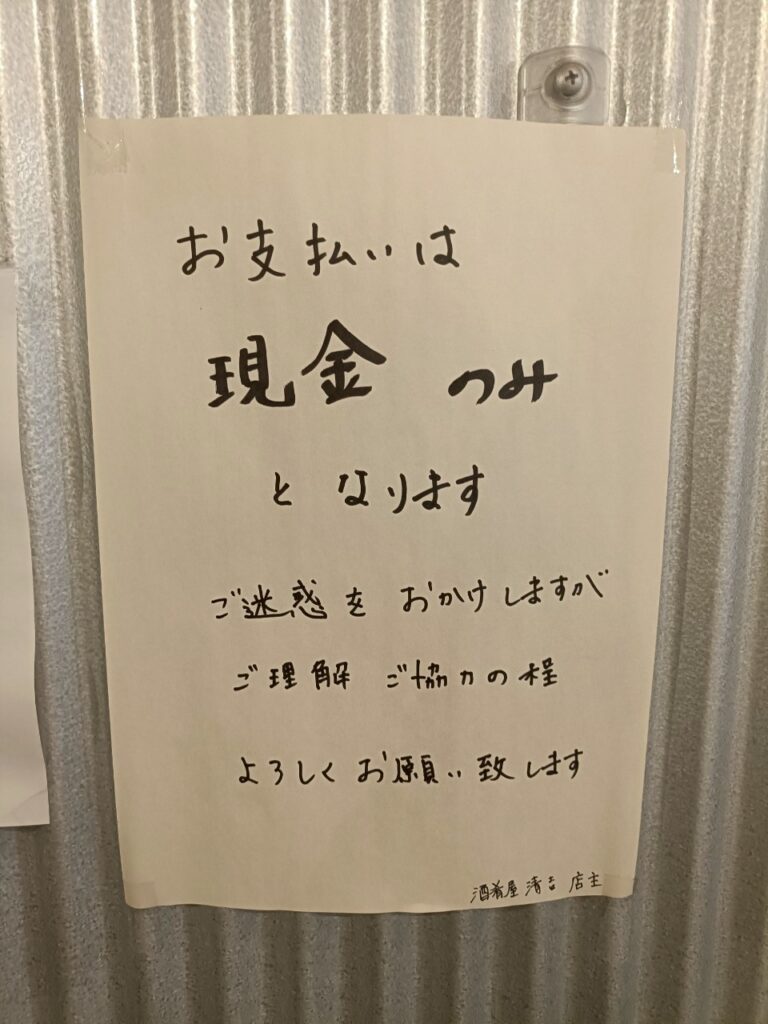 お支払いは
現金 のみ
と なります
ご迷惑を おかけしますが
ご理解 ご協力の程
よろしくお願い致します
酒肴屋 清吉 店主